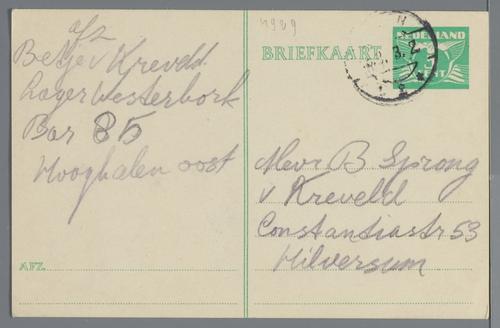 afz
Betje v Kreveld.
Lager Westerbork
Bar 85
Hooghalen oost
AFZ.
4929
BRIEFKAART
NEDERLAND
CENT
Mevr B Sprong
v Kreveld
Constantiastr 53
Hilversum